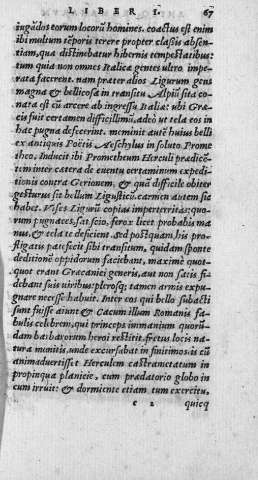 LIBER I. 67
iugádos eorum locorũ homines. coactus est enim
ibi multum tẽporis terere propter classis absen-
tiam, qua distinebatur hibernis tempestatibus:
tum quia non omnes Italicæ gentes ultro impe-
rata facerent. nam præter alios Ligurum gens
magna & bellicosa in transitu Alpiũ sita co-
nata est cũ arcere ab ingressu Italiæ: ubi Græ-
cis fuit certamen difficillimũ, adeò ut tela eos in
hac pugna defecerint. meminit autẽ huius belli
ex antiquis Poëtis Aeschylus in soluto Prome-
theo. Inducit ibi Prometheum Herculi prædicẽ-
tem inter cætera de euentu certaminum expedi-
tionis contra Gerionem, & quã difficile obiter
gesturus sit bellum Ligusticũ. carmen autem sic
habet. Vises Ligurũ copias imperterritas: quo-
rum pugnaces, sat scio, feror licet probabis ma-
nus, & tela te deficient. Sed postquam, his pro-
fligatis patefecit sibi transitum, quidam sponte
deditionẽ oppidorum faciebant, maximè quot-
quot erant Græcanici generis, aut non satis fi-
debant suis uiribus: plerosq; tamen armis expu-
gnare necesse habuit. Inter eos qui bello subacti
sunt fuisse aiunt & Cacum illum Romanis fa-
bulis celebrem, qui princeps immanium quorũ-
dam barbarorum heroi restitit. fretus locis na-
tura munitis, unde excursabat in finitimos. is cũ
animaduertisset Herculem castrametatum in
propinqua planicie, cum prædatorio globo in
eum irruit: & dormiente etiam tum exercitu,
e 2 quicq